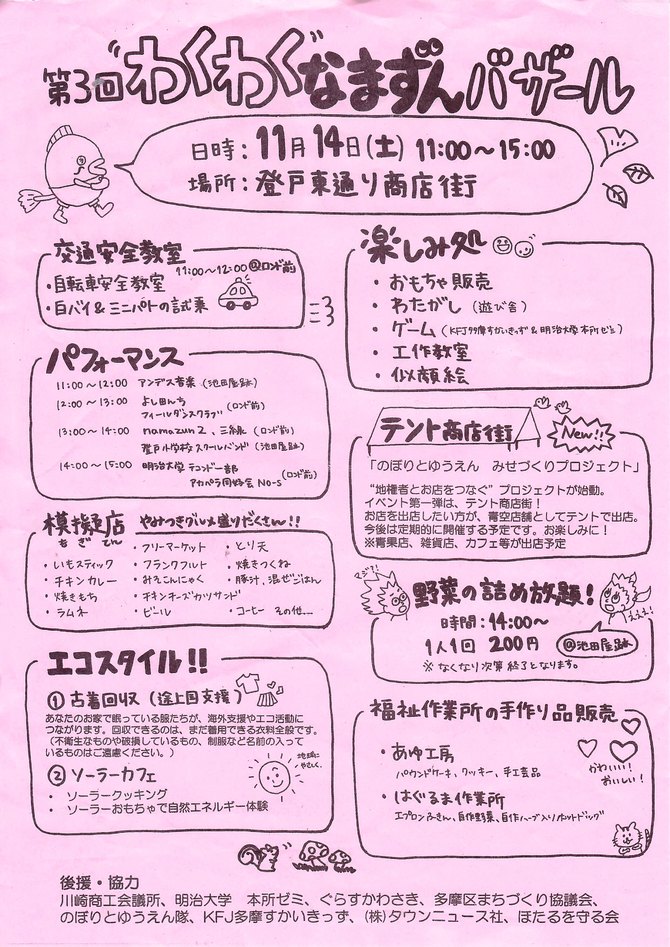 第3回 "わくわく" なまずんバザール
日時：11月14日(土) 11:00～15:00
場所：登戸東通り商店街
交通安全教室
11:00～12:00 @ロンド前
・自転車安全教室
・白バイ&ミニパトの試乗
パフォーマンス
11:00～12:00 アンデス音楽 (池田屋跡)
12:00～13:00 よし田んち
フィールダンスクラブ (ロンド前)
13:00～14:00 namazun2、三線 (ロンド前)
登戸小学校スクールバンド (池田屋跡)
14:00～15:00 明治大学 テンドー部
アカペラ同好会 No-s (ロンド前)
模擬店 やみつきグルメ盛りだくさん!!
もぎてん
・いもスティック
・チキンカレー
・焼きもち
・ラムネ
・フリーマーケット
・フランクフルト
・みそこんにゃく
・チキンチーズカツサンド
・ビール
・とり天
・焼きつくね
・豚汁、混ぜごはん
・コーヒー その他....
エコスタイル!!
① 古着回収 (途上国支援)
あなたのお家で眠っている服たちが、海外支援やエコ活動に
つながります。回収できるのは、まだ着用できる衣料全般です。
（不衛生なものや破損しているもの、制服など名前の入って
いるものはご遠慮ください。）
② ソーラーカフェ
・ ソーラークッキング
・ ソーラーおもちゃで自然エネルギー体験
地球に
やさしく。
楽しみ処
・おもちゃ販売
・わたがし (遊び舎)
・ゲーム (KFJ多摩すかいきっず & 明治大学 本所ゼミ)
・工作教室
・似顔絵
テント商店街
New!!
「のぼりとゆうえん みせづくりプロジェクト」
"地権者とお店をつなぐ" プロジェクトが始動。
イベント第一弾は、テント商店街！
お店を出店したい方が、青空店舗としてテントで出店。
今後は定期的に開催する予定です。お楽しみに！
※青果店、雑貨店、カフェ等が出店予定
マジで!?
野菜の詰め放題!
時間：14:00～
1人1回 200円
@池田屋跡
※なくなり次第終了となります。
えええ!
福祉作業所の手作り品販売
・あゆ工房
パウンドケーキ、クッキー、手工芸品
・はぐるま作業所
エプロン、ふきん、自作野菜、自作ハーブ入りホットドッグ
かわいい!
おいしい!
後援・協力
川崎商工会議所、明治大学 本所ゼミ、ぐらすかわさき、多摩区まちづくり協議会、
のぼりとゆうえん隊、KFJ多摩すかいきっず、(株)タウンニュース社、ほたるを守る会